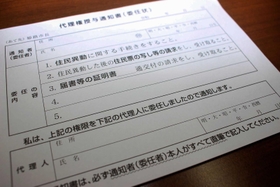 代理権授与通知書(委任状)
年 月 日
通知者
(委任者)
住所
氏名
1. 住民異動に関する手続きをすること。
2. 住民異動した後の住民票の写し等の請求をし、受け取ること。
3. 届書等の証明書 通交付の請求をし、受け取ること。
4.
5.
委任の内容
私は、上記の権限を下記の代理人に委任しましたので通知します。
代理人
住所
氏名
通知書は、必ず通知者(委任者)本人がすべて直筆で記入してください。